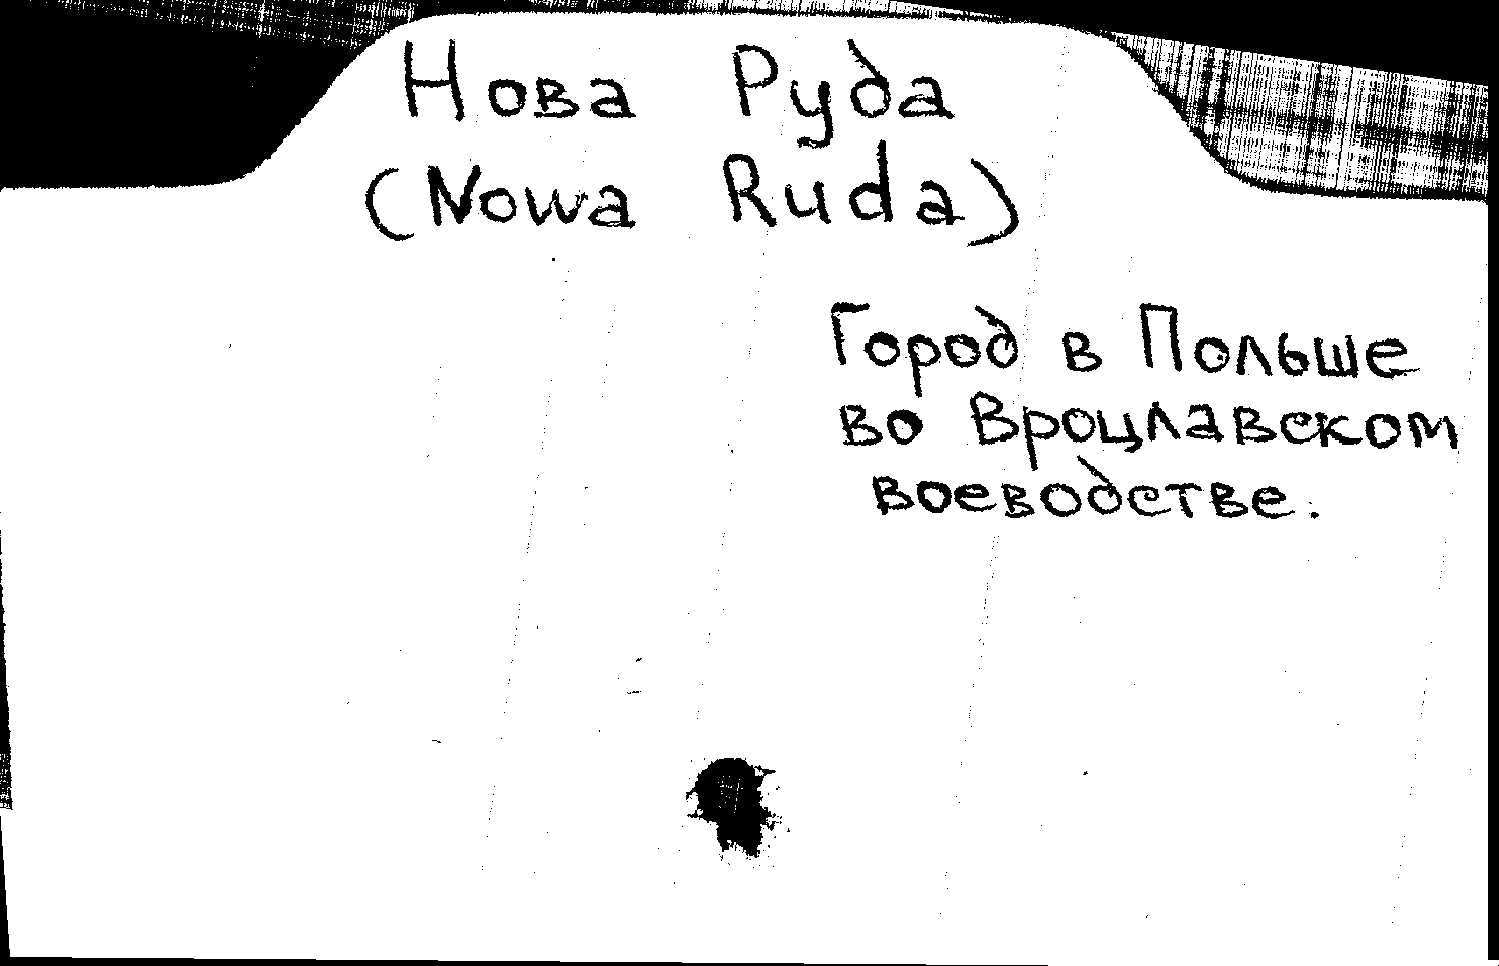 Нова Руда
(Nowa Ruda)
Город в Польше
во Вроцлавском
воеводстве.